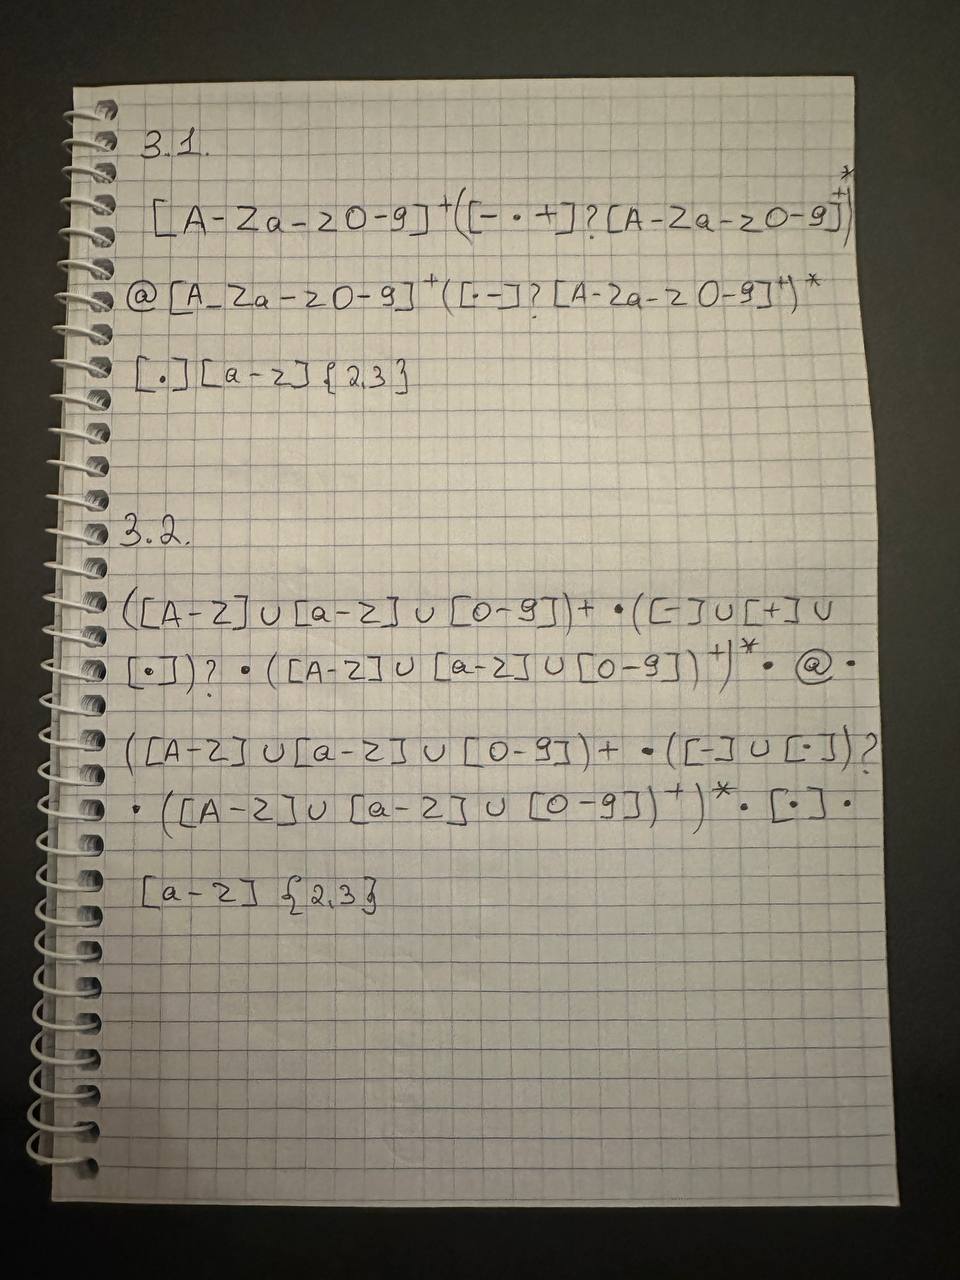 3.1.
[A-Za-z0-9]+([-.+]?[A-Za-z0-9]+)*
@[A-Za-z0-9]+([.-]?[A-Za-z0-9]+)*
[.][a-z]{2,3}
3.2.
([A-Z]∪[a-z]∪[0-9])+•([-]∪[+]∪
[•])?•([A-Z]∪[a-z]∪[0-9])+)*•@•
([A-Z]∪[a-z]∪[0-9])+•([-]∪[•])?
•([A-Z]∪[a-z]∪[0-9])+)*•[•]•
[a-z]{2,3}